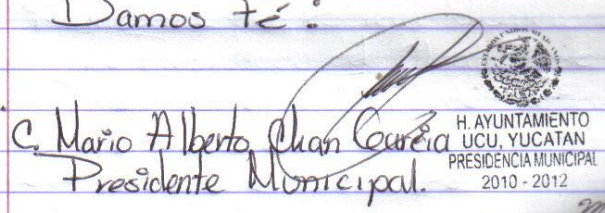 Damos fé:
C. Mario Alberto Chan García
Presidente Municipal.
ESTADOS UNIDOS MEXICANOS
H. AYUNTAMIENTO
UCU, YUCATAN
PRESIDENCIA MUNICIPAL
2010 - 2012